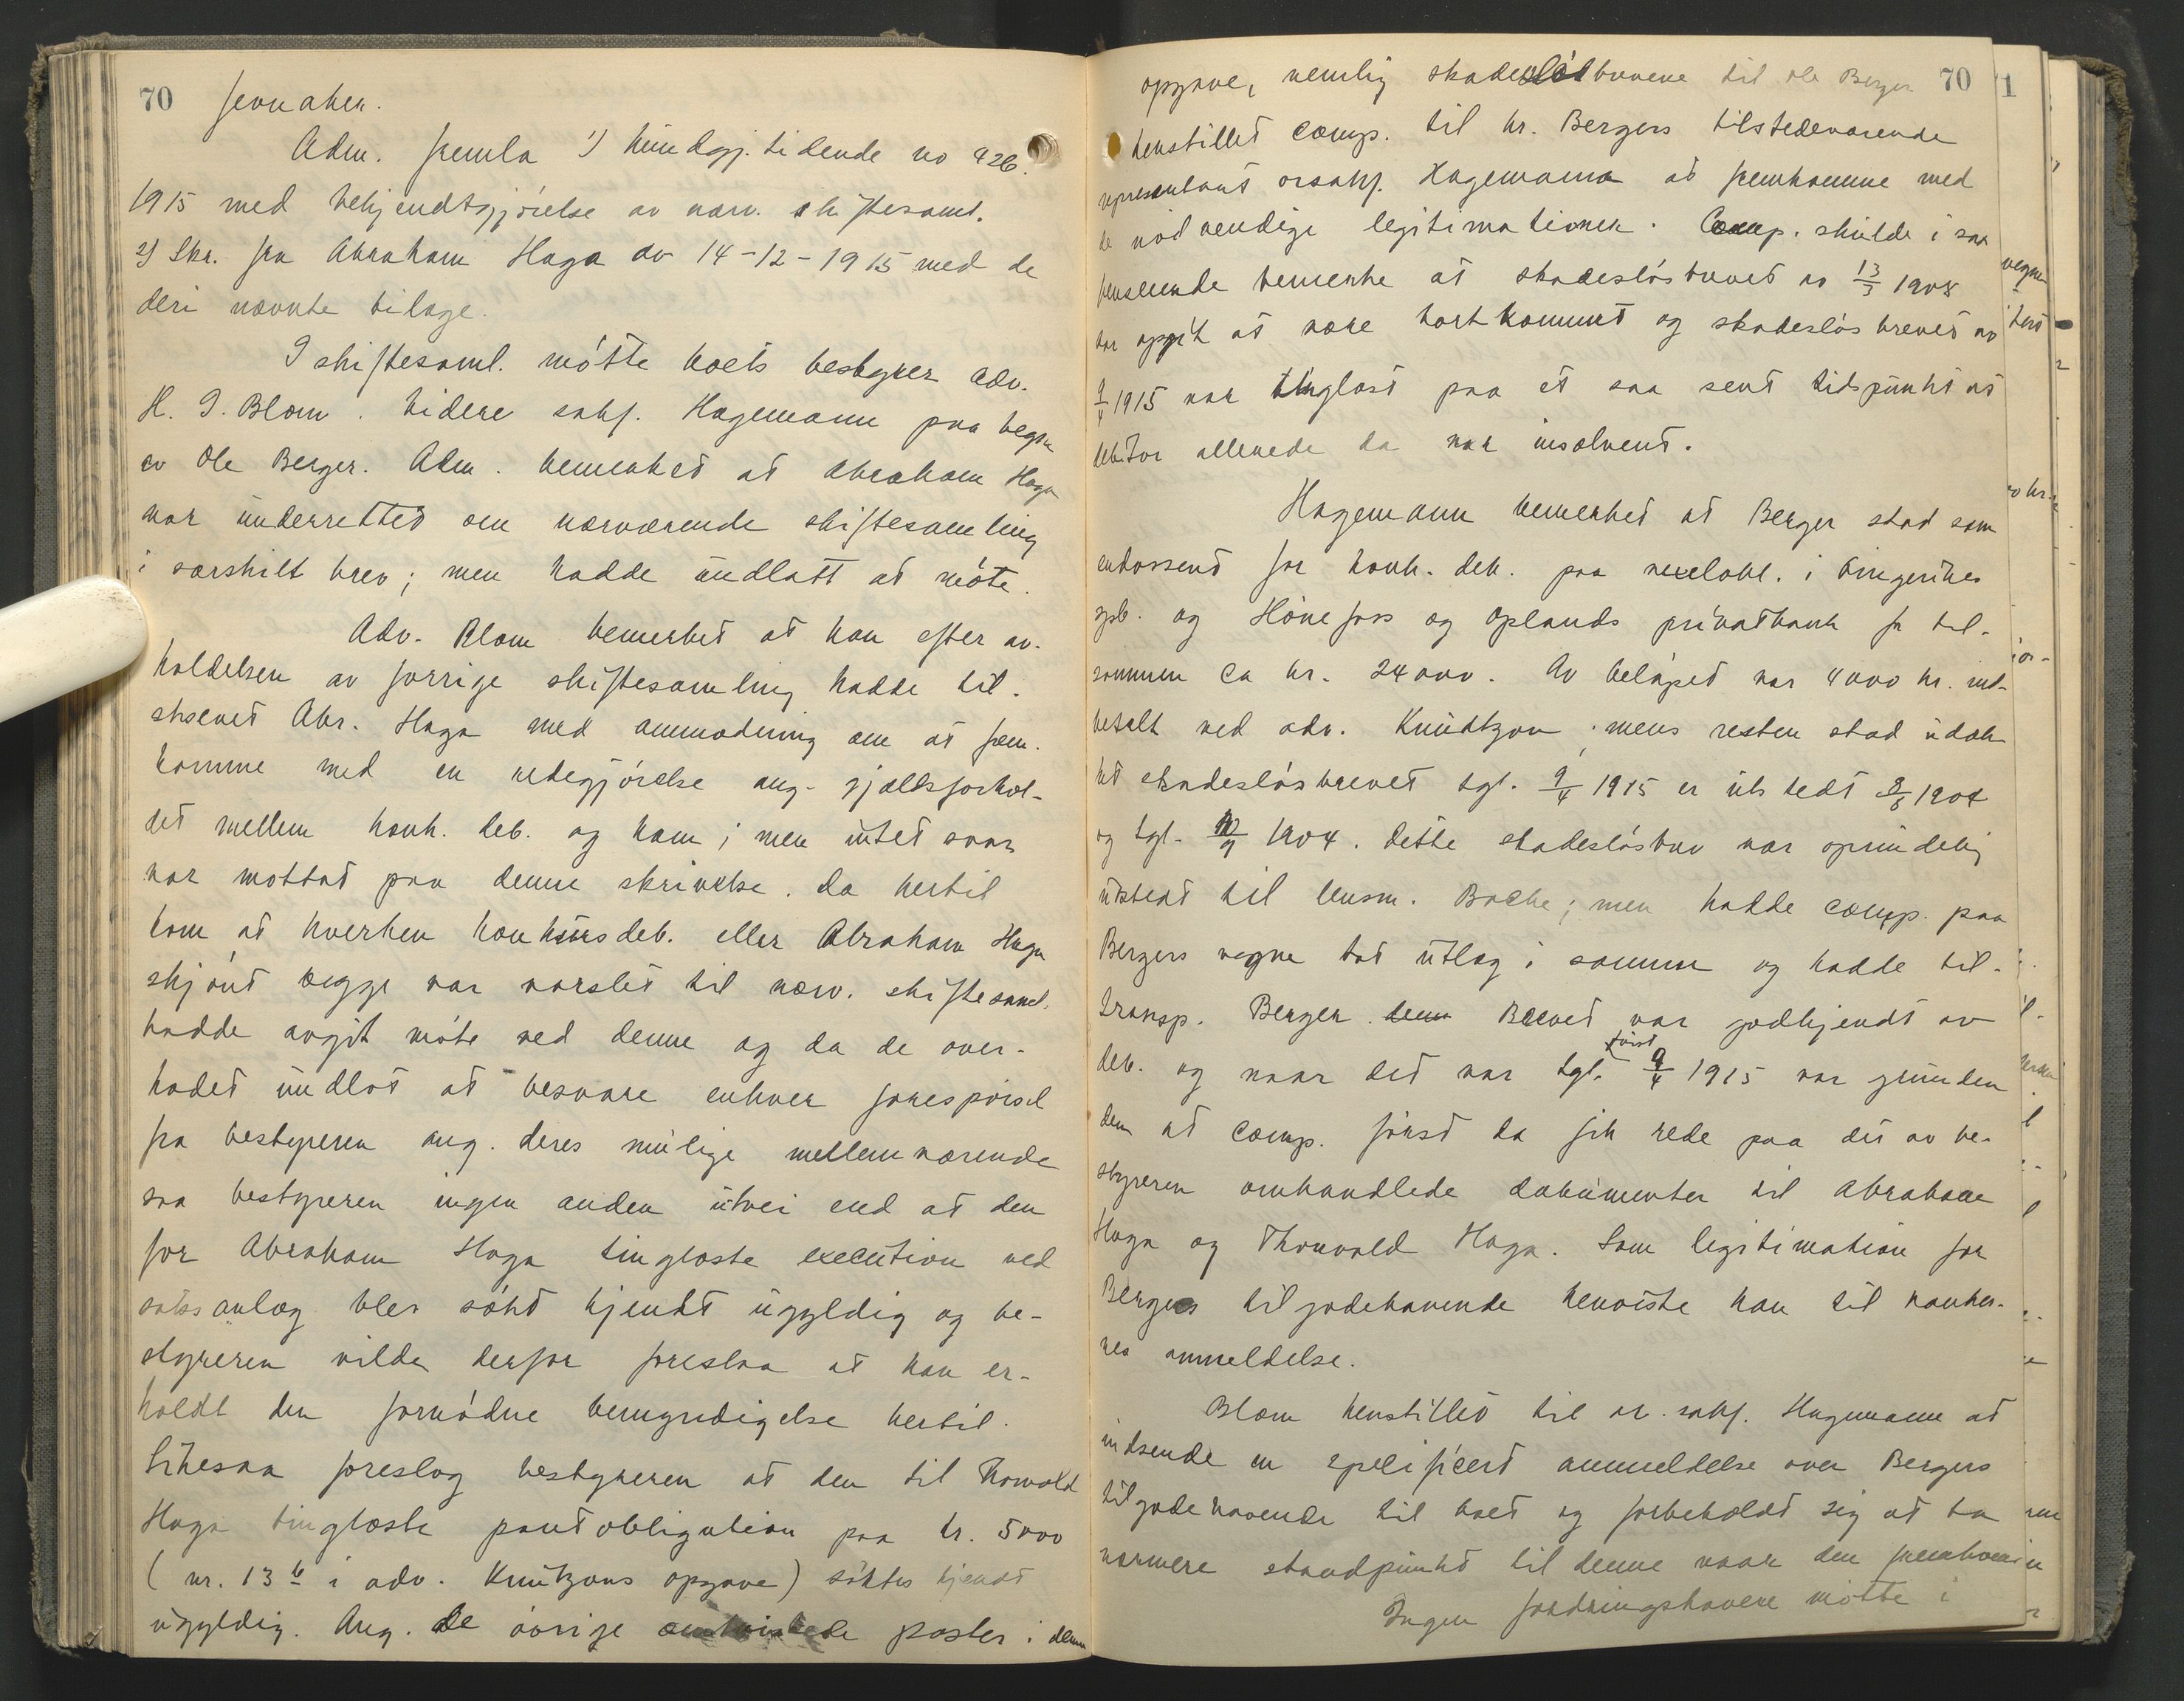 70 Jevnaker.
Adm. fremla 1) kundgj. tidende no 426.
1915 med bekjendtgjørelse av nærv. skiftesaml.
2) Skr. fra Abraham Haga av 14-12-1915 med de
deri nævnte bilage.
I skiftesaml. møtte boets bestyrer adv.
H. I. Blom. Videre sakf. Hagemann paa vegne
av Ole Berger. Adm. bemerket at Abraham Haga
var underrettet om nærværende skiftesamling
i særskilt brev; men hadde undlatt at møte.
Adv. Blom bemerket at han efter av-
holdelsen av forrige skiftesamling hadde til-
skrevet Abr. Haga med anmodning om at frem-
komme med en redegjørelse ang. gjældsforhol-
det mellem konk. deb. og ham; men intet svar
var mottat paa denne skrivelse. Da hertil
kom at hverken konkursdeb. eller Abraham Haga
skjønt begge var varslet til nærv. skiftesaml.
hadde avgit møte ved denne og da de over-
hodet undlot at besvare enhver forespørsel
fra bestyreren ang. deres mulige mellemværende
saa bestyreren ingen anden utvei end at den
for Abraham Haga tinglæste execution ved
søksanlæg blev søkt kjendt ugyldig og be-
styreren vilde derfor foreslaa at han er-
holdt den fornødne bemyndigelse hertil.
Likesaa foreslog bestyreren at den til Thorvald
Haga tinglæste pantobligation paa kr. 5000
(nr. 13 b i adv. Knutzons opgave) søktes kjendt
ugyldig. Ang. de øvrige omtvistede poster i denne
opgave, nemlig skadesløsbrevene til Ole Berger 70
henstillet comp. til hr. Bergers tilstedeværende
representant orsakf. Hagemann at fremkomme med
de nødvendige legitimationer. Comp. skulde i saa
henseende bemerke at skadesløsbrevet av 13/3 1908
var opgit at være bortkommet og skadesløsbrevet av
9/4 1915 var tinglæst paa et saa sent tidspunkt at
debitor allerede da var insolvent.
Hagemann bemerket at Berger stod som
endossent for konk. deb. paa vexelobl. i Ringerikes
spb. og Hønefoss og Oplands privatbank for til-
sammen ca kr. 24000. Av beløpet var 4000 kr. ind-
betalt ved adv. Knudtzon; mens resten stod udæk-
ket. Skadesløsbrevet tgl. 9/4 1915 er utstedt 1904
og tgl. 1904. Dette skadesløsbrev var oprindelig
utstedt til lensm. Bache; men hadde comp. paa
Bergers vegne tat utlæg i samme og hadde til-
transp. Berger Brevet var godkjendt av
deb. og naar det var tgl. først 9/4 1915 var grunden
den at comp. først da fik rede paa de av be-
styreren omhandlede dokumenter til Abraham
Haga og Thorvald Haga. Som legitimation for
Bergers tilgodehavende henviste han til banker-
nes anmeldelse.
Blom henstillet til or. sakf. Hagemann at
indsende en specificert anmeldelse over Bergers
tilgodehavende til boet og forbeholdt sig at ta
nærmere standpunkt til denne naar den fremkom
Ingen fordringshavere møtte i